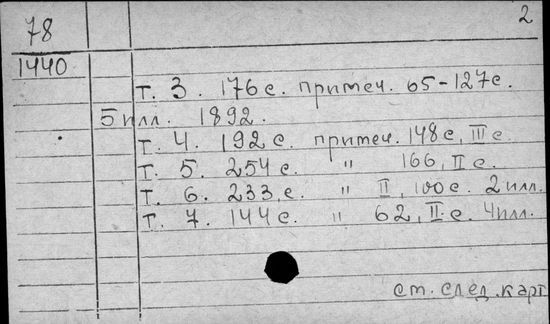 78 2
1440
Т. 3. 176 с. примеч. 65-127 с.
5 илл. 1892.
Т. 4. 192 с. примеч. 148 с, III с
Т. 5. 254 с. " 166, II с.
Т. 6. 233, с. " II, 100 с. 2 илл.
Т. 7. 144 с. " 62, II. с. 4 илл.
См. след. карт